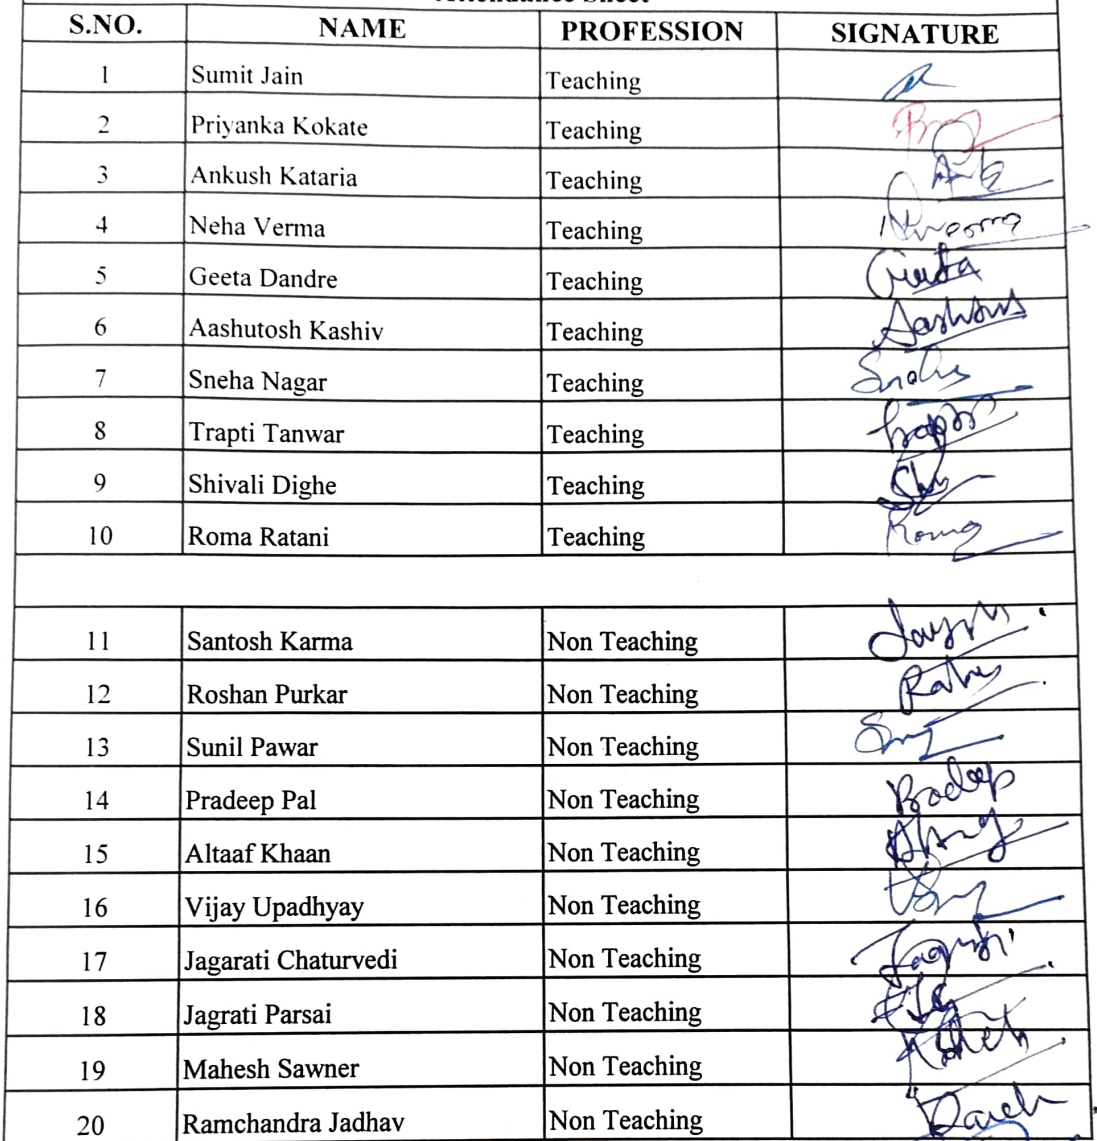 Attendance Sheet
S.NO. NAME PROFESSION SIGNATURE
1 Sumit Jain Teaching
2 Priyanka Kokate Teaching
3 Ankush Kataria Teaching
4 Neha Verma Teaching
5 Geeta Dandre Teaching Geeta
6 Aashutosh Kashiv Teaching
7 Sneha Nagar Teaching Sneha
8 Trapti Tanwar Teaching
9 Shivali Dighe Teaching
10 Roma Ratani Teaching Roma
11 Santosh Karma Non Teaching
12 Roshan Purkar Non Teaching
13 Sunil Pawar Non Teaching
14 Pradeep Pal Non Teaching Pradeep
15 Altaaf Khaan Non Teaching
16 Vijay Upadhyay Non Teaching
17 Jagarati Chaturvedi Non Teaching
18 Jagrati Parsai Non Teaching
19 Mahesh Sawner Non Teaching
20 Ramchandra Jadhav Non Teaching